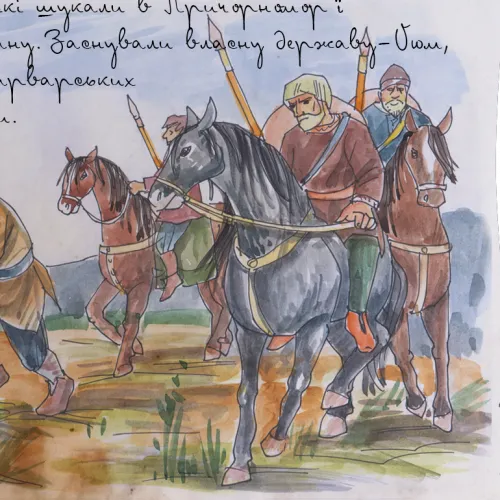 кі шукали в Причорномор'ї
ну. Заснували власну державу-Ойюм,
арварських